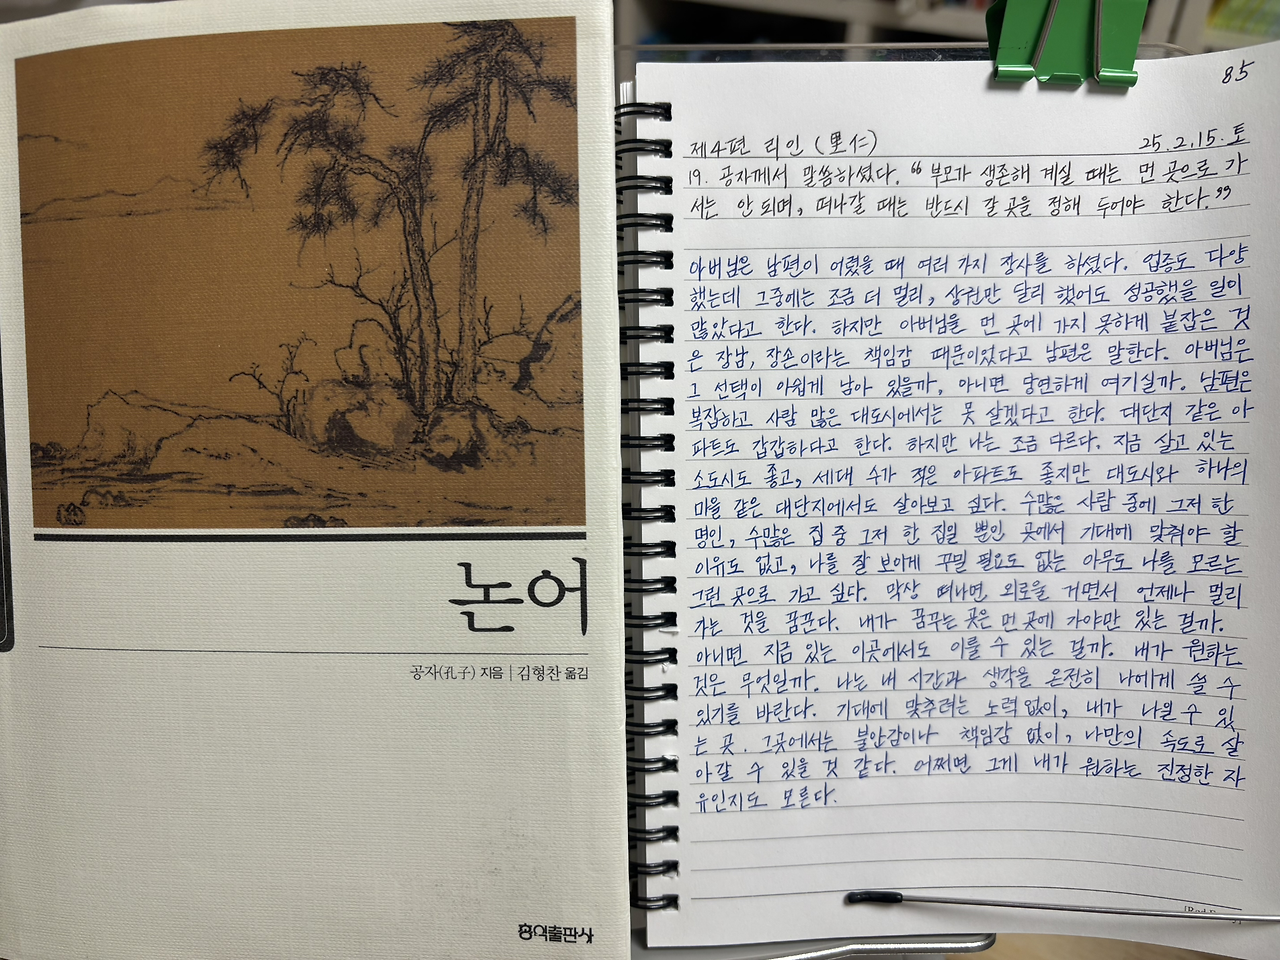 논어
공자(孔子) 지음 | 김형찬 옮김
홍익출판사
85
제4편 리인 (里仁) 25.2.15.토
19. 공자께서 말씀하셨다. "부모가 생존해 계실 때는 먼 곳으로 가
서는 안 되며, 떠나갈 때는 반드시 갈 곳을 정해 두어야 한다."
아버님은 남편이 어렸을 때 여러 가지 장사를 하셨다. 업종도 다양
했는데 그중에는 조금 더 멀리, 상권만 달리 했어도 성공했을 일이
많았다고 한다. 하지만 아버님을 먼 곳에 가지 못하게 붙잡은 것
은 장남, 장손이라는 책임감 때문이었다고 남편은 말한다. 아버님은
그 선택이 아쉽게 남아 있을까, 아니면 당연하게 여기실까. 남편은
복잡하고 사람 많은 대도시에서는 못 살겠다고 한다. 대단지 같은 아
파트도 갑갑하다고 한다. 하지만 나는 조금 다르다. 지금 살고 있는
소도시도 좋고, 세대 수가 적은 아파트도 좋지만 대도시와 하나의
마을 같은 대단지에서도 살아보고 싶다. 수많은 사람 중에 그저 한
명인, 수많은 집 중 그저 한 집일 뿐인 곳에서 기대에 맞춰야 할
이유도 없고, 나를 잘 보이게 꾸밀 필요도 없는 아무도 나를 모르는
그런 곳으로 가고 싶다. 막상 떠나면 외로울 거면서 언제나 멀리
가는 것을 꿈꾼다. 내가 꿈꾸는 곳은 먼 곳에 가야만 있는 걸까.
아니면 지금 있는 이곳에서도 이룰 수 있는 걸까. 내가 원하는
것은 무엇일까. 나는 내 시간과 생각을 온전히 나에게 쓸 수
있기를 바란다. 기대에 맞추려는 노력 없이, 내가 나일 수 있
는 곳. 그곳에서는 불안감이나 책임감 없이, 나만의 속도로 살
아갈 수 있을 것 같다. 어쩌면 그게 내가 원하는 진정한 자
유인지도 모른다.